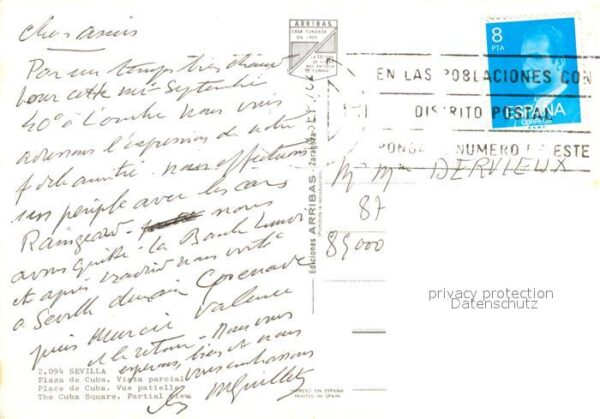 chers amis
Par un temps très chaud
pour cette mi-Septembre
40° à l'ombre nous vous
adressons l'expression de notre
amitié. nous effectuons
un périple avec les cars
nous
avons quitté la
et après Madrid nous voilà
à Séville demain Grenade
puis Murcie Valence
et le retour. Nous vous
espérons bien et nous
vous embrassons
ARRIBAS
CASA FUNDADA
EN 1905
8
PTA
ESPAÑA
CORREOS
EN LAS POBLACIONES CON
DISTRITO POSTAL
PONGA NUMERO DE ESTE
Mr Mme DERVIEUX
87
89000
Ediciones ARRIBAS - Zaragoza
privacy protection
Datenschutz
2.094 SEVILLA
Plaza de Cuba. Vista parcial
Place de Cuba. Vue partielle
The Cuba Square. Partial view
IMPRESO EN ESPAÑA
PRINTED IN SPAIN